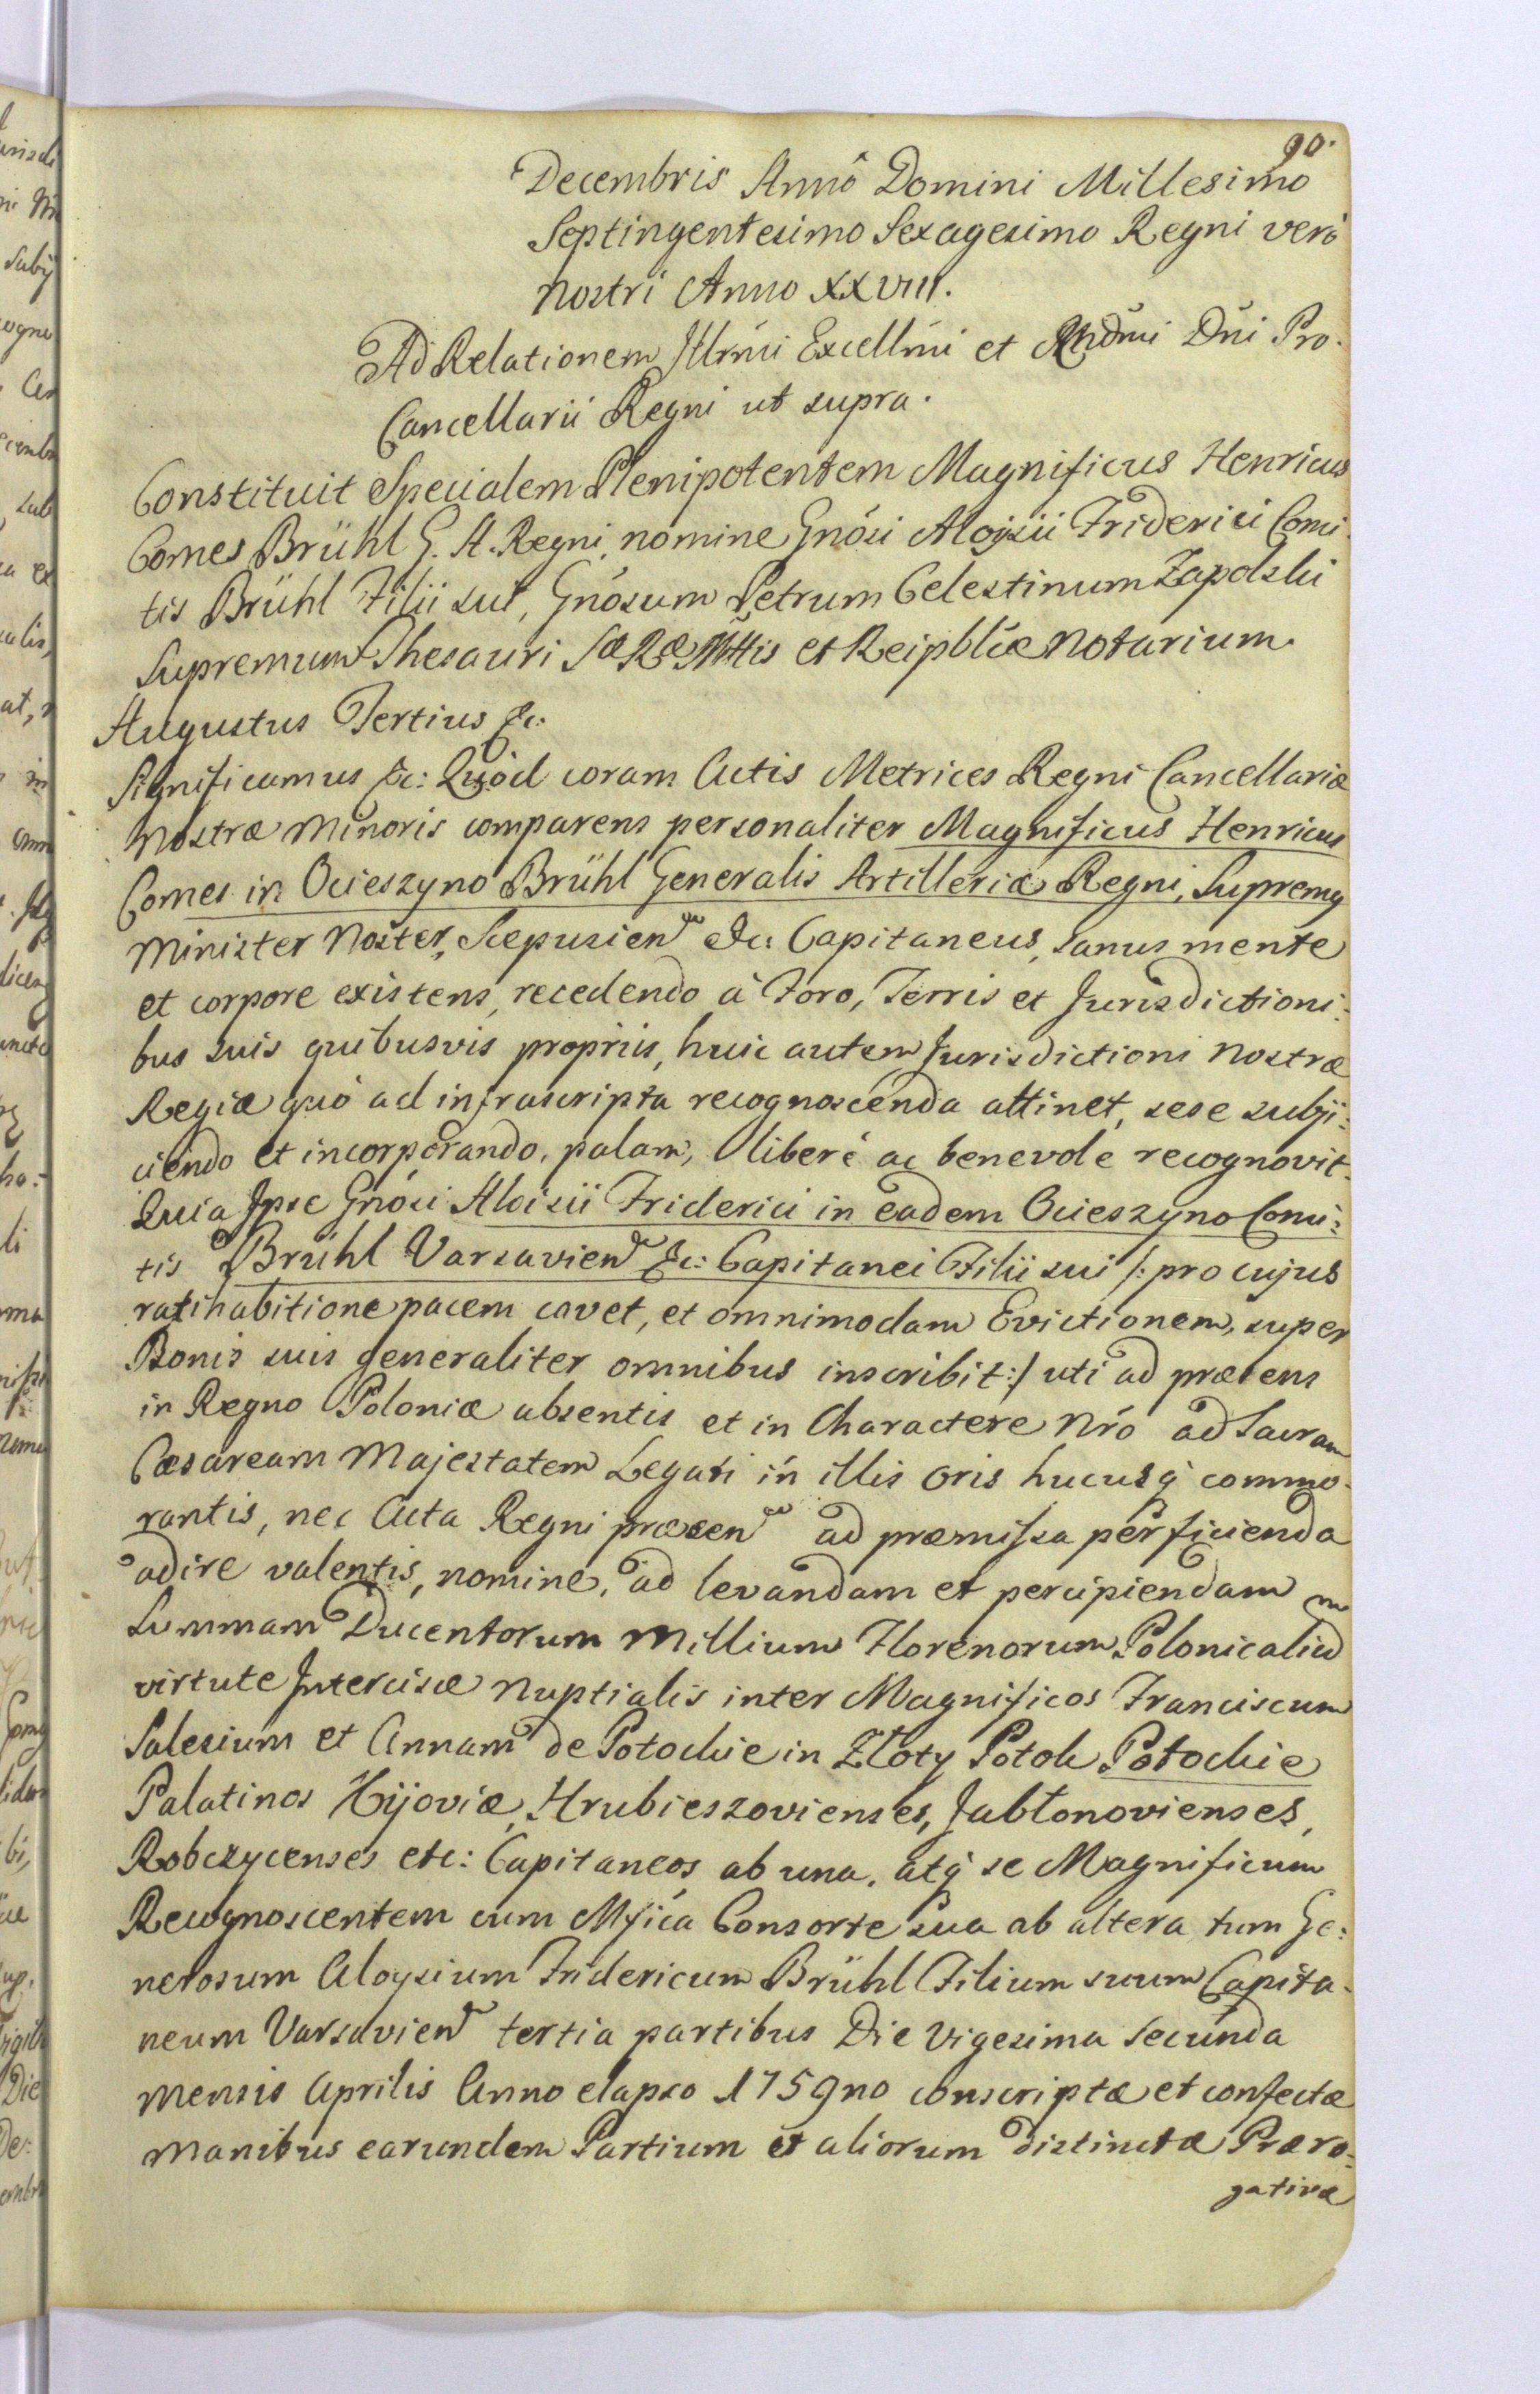 90.
Decembris Annô Domini Millesimo
Septingentesimo Sexagesimo Regni verò
nostri Anno XXVIII.
Ad Relationem Illrmi Excellmi et Rndmi Dni Pro-
Cancellarii Regni ut supra.
Constituit Specialem Plenipotentem Magnificus Henricus
Comes Brühl G. A. Regni, nomine Gnosi Aloysii Friderici Comi-
tis Brühl Filii sui, Gnosum Petrum Celestinum Zapolski
Supremum Thesauri Sæ Ræ Mttis et Reipblicæ Notarium.
Augustus Tertius &c:
Significamus &c: Quòd coram Actis Metrices Regni Cancellariæ
Nostræ Minoris comparens personaliter Magnificus Henricus
Comes in Ocieszyno Brühl Generalis Artilleriæ Regni, Supremg
Minister Noster, Scepusien &c: Capitaneus, sanus mente
et corpore existens, recedendo à Foro, Terris et Jurisdictioni:
bus suis quibusvis propriis, huic autem Jurisdictioni Nostræ
Regiæ quò ad infrascripta recognoscenda attinet, sese subji:
ciendo et incorporando, palam, liberè ac benevolè recognovit.
Quia Ipse Gnosi Aloisii Friderici in eadem Ocieszyno Comi:
tis Brühl Varsavien &c: Capitanei Filii sui /: pro cujus
ratihabitione pacem cavet, et omnimodam Evictionem, super
Bonis suis generaliter omnibus inscribit :/ uti ad præsens
in Regno Poloniæ absentis et in Charactere Nro ad Sacram
Cæsaream Majestatem Legati in illis oris hucusq commo-
rantis, nec Acta Regni præsen ad præmissa perficienda
adire valentis, nomine, ad levandam et percipiendam
Summam Ducentorum Millium Florenorum Polonicaliu
virtute Intercisæ Nuptialis inter Magnificos Franciscum
Salesium et Annam de Potockie in Złoty Potok Potockie
Palatinos Kijoviæ, Hrubieszovienses, Jabłonovienses,
Robczycenses etc: Capitaneos ab una, atq se Magnificum
Recognoscentem cum Mfica Consorte sua ab altera tum Ge:
nerosum Aloysium Fridericum Brühl Filium suum Capita-
neum Varsavien tertia partibus Die vigesima secunda
Mensis Aprilis Anno elapso 1759no conscriptæ et confectæ
Manibus earundem Partium et aliorum distinctæ Præro-
gativæ